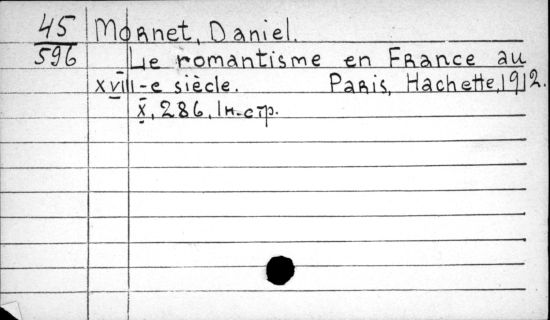 45
596
Mornet, Daniel.
Le romantisme en France au
XVIII-e siècle. Paris, Hachette, 1912.
X, 286, 1 н.стр.